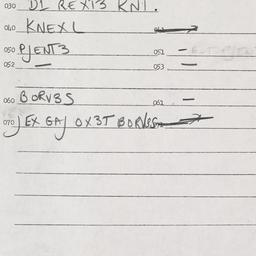 030 D1 REXT3 KNI.
040 KNEXL
050 PJENT3 051 –
052 — 053 —
060 BORV3S 061 –
070 JEX GAJ OX3T